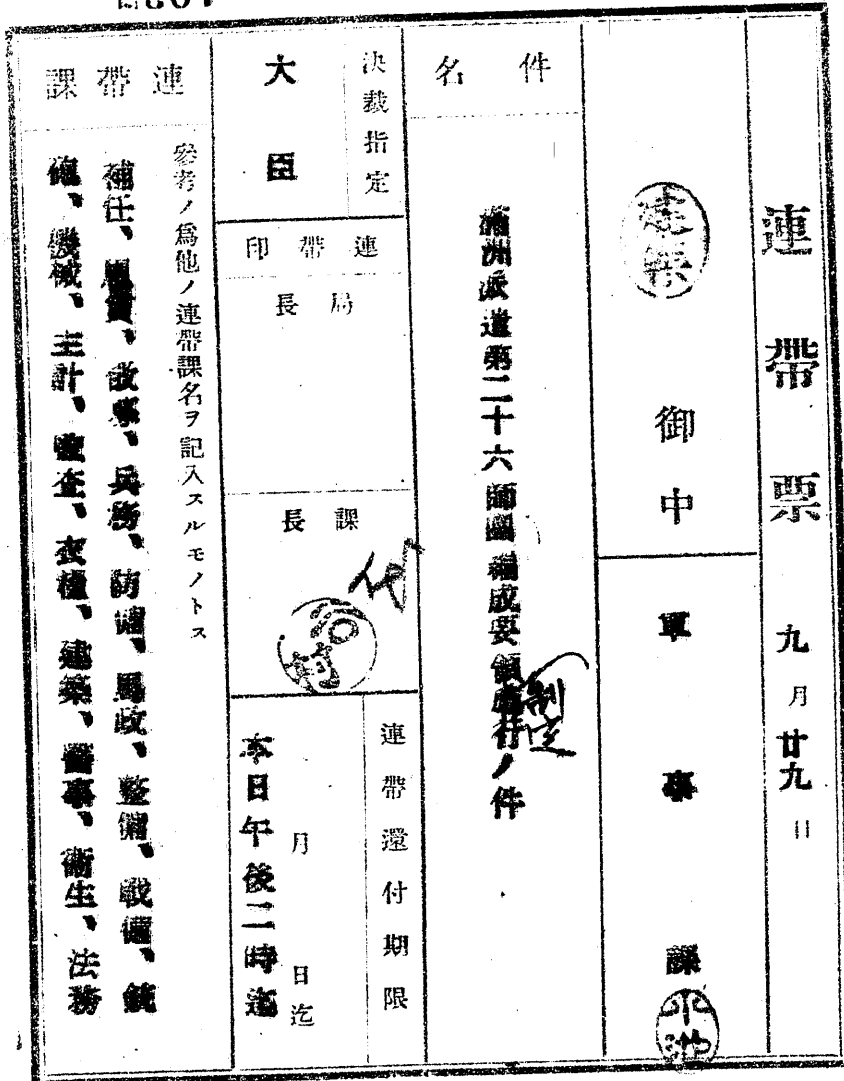 連帶票 九月廿九日
建築 御中
軍事課
件名
滿洲派遣第二十六師團編成要領施行ノ件
制定
決裁指定
大臣
連帶印
局長
課長
連帶還付期限
月 日迄
本日午後二時迄
連帶課
參考ノ爲他ノ連帶課名ヲ記入スルモノトス
補任、恩賞、徵募、兵務、防備、馬政、整備、戰備、銃
砲、機械、主計、監査、衣糧、建築、醫事、衞生、法務